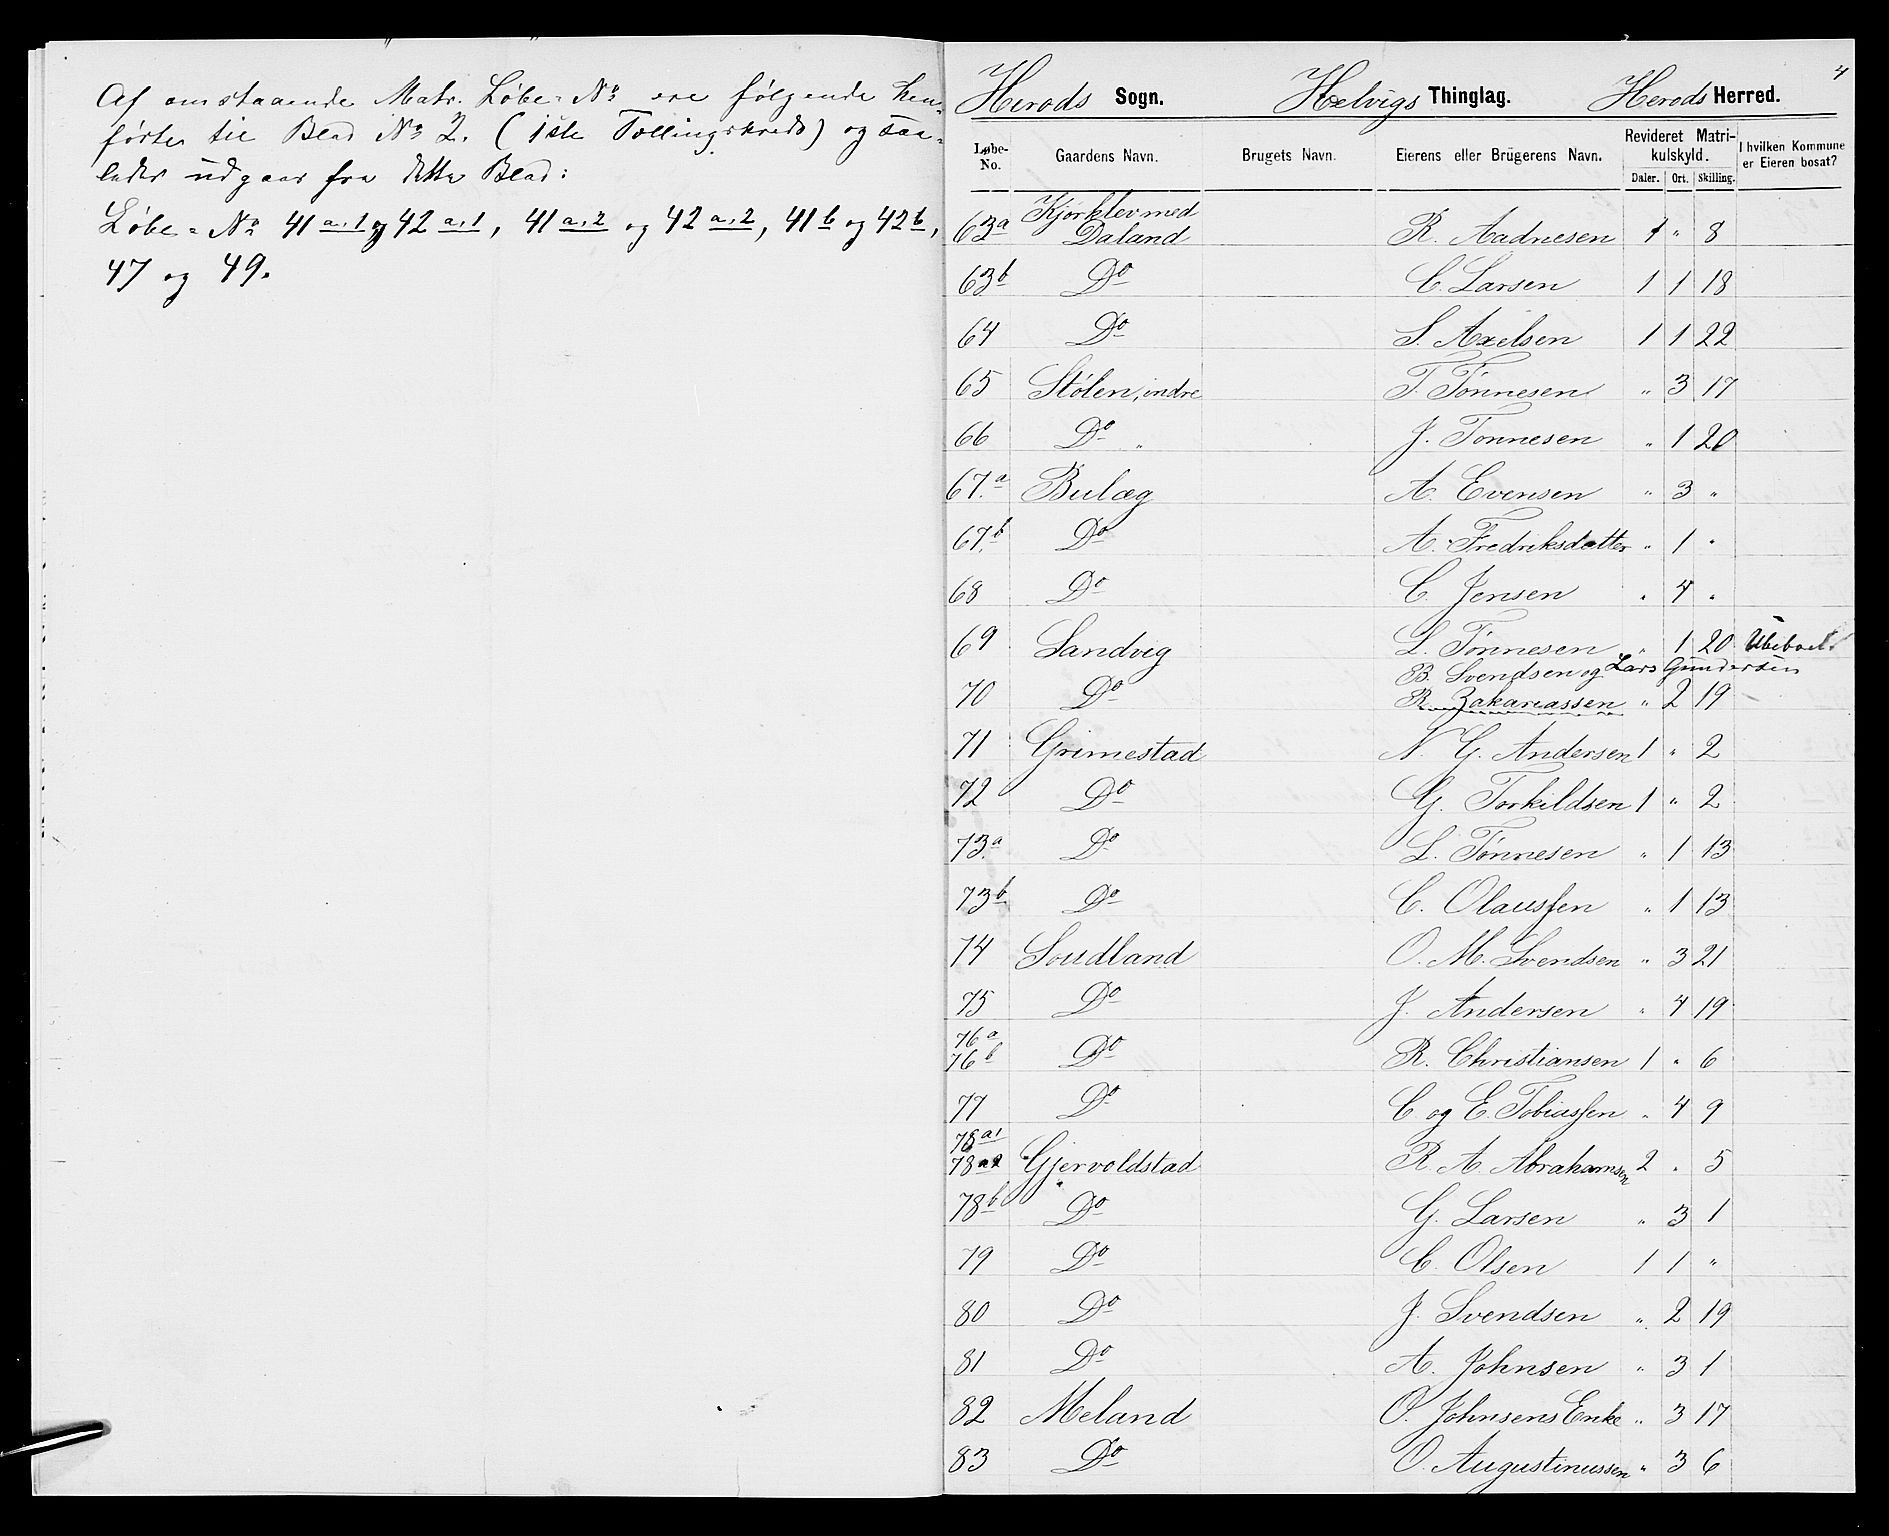 Af omstaaende Matr. Løbe-No ere følgende hen-
førte til Blad No 2. (1ste Tællingskreds) og saa-
ledes udgaar fra dette Blad:
Løbe-No 41 a.1 og 42 a.1, 41 a.2 og 42 a.2, 41 b og 42 b,
47 og 49.
4
Herods Sogn. Helvigs Thinglag. Herods Herred.
Løbe-No. Gaardens Navn. Brugets Navn. Eierens eller Brügerens Navn. Revideret Matri-kulskyld. Daler. Ort. Skilling. I hvilken Kommune er Eieren bosat?
63a Kjørklev med Daland R. Aadnesen 1 " 8
63b Do C. Larsen 1 1 18
64 Do S. Axelsen 1 1 22
65 Stølen, indre T. Tønnesen " 3 17
66 Do " J. Tønnesen " 1 20
67.a Bulæg A. Evensen " 3 "
67.b Do A. Fredriksdatter " 1 "
68 Do C. Jensen " 4 "
69 Sandvig L. Tønnesen " 1 20
B. Svendsen og Lars Gundersen
70 Do R. Zakariassen " 2 19
71 Grimestad N. G. Andersen 1 " 2
72 Do G. Torkildsen 1 " 2
73.a Do L. Tønnesen " 1 13
73b Do C. Olaussen " 1 13
74 Soudland O. M. Svendsen " 3 21
75 Do J. Andersen " 4 19
76 a
76 b Do R. Christiansen 1 " 6
77 Do C. og E. Tobiassen " 4 9
78 a1
78 a2 Gjervoldstad R. A. Abrahamsen 2 " 5
78b Do G. Larsen " 3 1
79 Do C. Olsen 1 1 "
80 Do J. Svendsen " 2 19
81 Do A. Johnsen " 3 1
82 Meland O. Johnsens Enke " 3 17
83 Do O. Augustinussen " 3 6